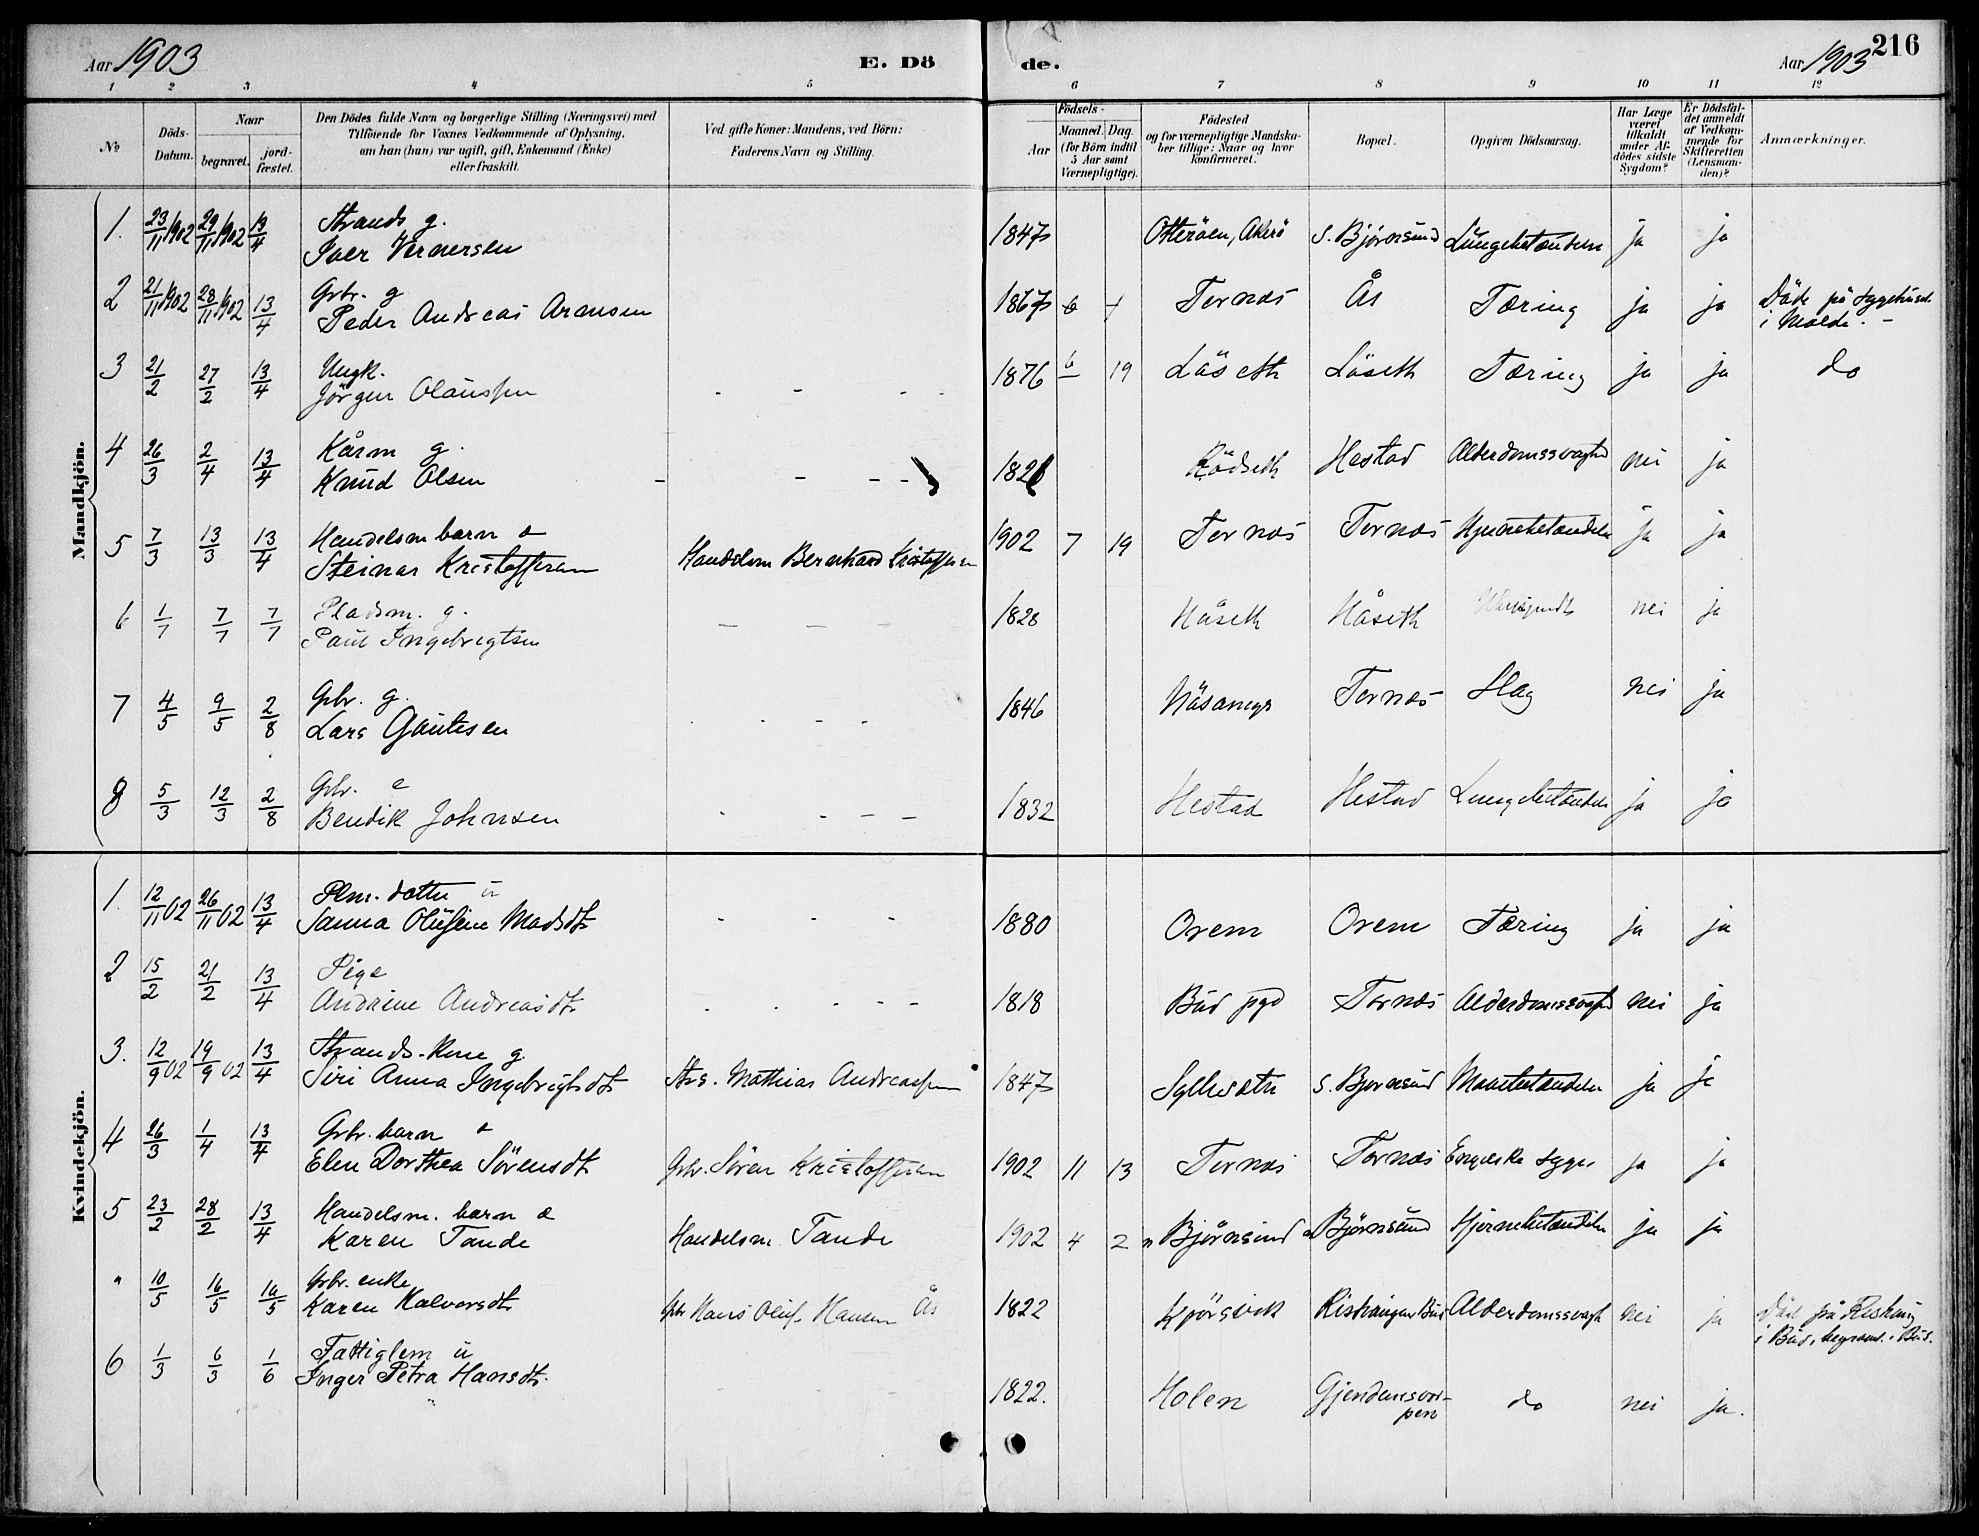 Aar 1903
E. Dö
de.
Aar 1903
216
1 2 3 4 5 6 7 8 9 10 11 12
No
Döds-
Datum.
Naar
begravet.
jord-
fæstet.
Den Dödes fulde Navn og borgerlige Stilling (Næringsvei) med
Tilföiende for Voxnes Vedkommende af Oplysning,
om han (hun) var ugift, gift, Enkemand (Enke)
eller fraskilt.
Ved gifte Koner: Mandens, ved Börn:
Faderens Navn og Stilling.
Födsels-
Aar
Maaned. Dag.
(for Börn indtil
5 Aar samt
Værnepligtige).
Födested
og for værnepligtige Mandska-
ber tillige: Naar og hvor
Konfirmeret.
Bopæl.
Opgiven Dödsaarsag.
Har Læge
været
tilkaldt
under Af-
dödes sidste
Sygdom?
Er Dödsfal-
det anmeldt
af Vedkom-
mende for
Skifteretten
(Lensman-
den)?
Anmærkninger.
Mandkjön.
1. 23/11 1902 29/11 1902 13/4 Strands g.
Iver Vernersen 1847 Otteröen, Akerö S. Björnsund Lungebetændelse ja ja
2 21/11 1902 28/11 1902 13/4 Gbr. g
Peder Andreas Arnesen 1867 Tornes Ås Tæring ja ja Död på sygehuset
i Molde. -
3 21/2 27/2 13/4 Ungk.
Jörgen Olaussen 1876 6 19 Låseth Låseth Tæring ja ja do
4 26/3 2/4 13/4 Kårm g.
Knud Olsen Rödseth Hestad Alderdomssvaghed nei ja
5 7/3 13/3 13/4 Handelsm barn
Steinar Kristoffersen Handelsm Bernhard Kristoffersen 1902 7 19 Tornes Tornes Hjernebetændelse ja ja
6 1/7 7/7 7/7 Pladsm. g.
Paul Ingebrigtsen 1828 Håseth Håseth nei ja
7 4/5 9/5 2/8 Gbr. g.
Lars Gautesen 1846 Näsamyr Tornes Slag nei ja
8 5/3 12/3 2/8 Gbr. e
Bendik Johnsen 1832 Hestad Hestad Lungebetændelse ja ja
Kvindekjön.
1. 12/11 02 26/11 02 13/4 Plm. datter u
Sanna Olufine Madsdtr 1880 Orem Orem Tæring ja ja
2 15/2 21/2 13/4 Pige
Andrine Andreasdtr 1818 Bud pgd Tornes Alderdomssvaghed nei ja
3. 12/9 02 19/9 02 13/4 Strands. kone g.
Siri Anna Ingebrigtsdtr Strs. Mathias Andreassen 1847 Syltesæth S. Bjornsund Mavebetændelse ja ja
4 26/3 1/4 13/4 Gbr. barn
Elen Dorthea Sörensdtr Gbr. Sören Kristoffersen 1902 11 13 Tornes Tornes Engelske syge ja ja
5 23/2 28/2 13/4 Handelsm. barn
Karen Tande Handelsm Tande 1902 4 2 n Björnsund n Björnsund Hjernebetændelse ja ja
" 10/5 16/5 16/5 Gbr. enke
Karen Halvorsdtr Gbr Hans Oluf Hansen Ås 1822 Kjörsvik Alderdomssvagh nei ja Död på Rishaug
i Bud, begravet i Bud.
6 1/3 6/3 1/6 Fattiglem u
Inger Petra Hansdtr. 1822. Holen do nei ja.